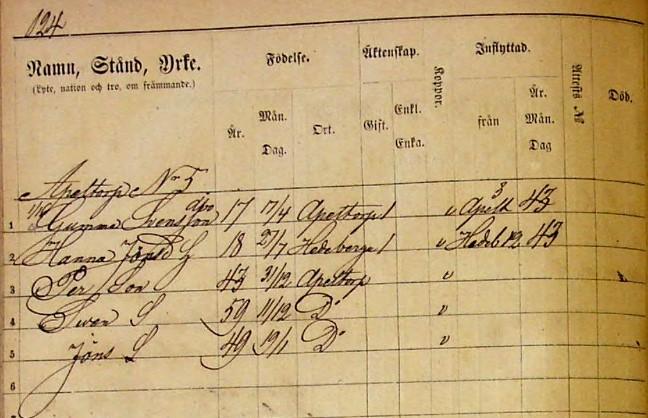 124
Namn, Stånd, Yrke.
(Lyte, nation och tro, om främmande.)
Födelse.
År.
Mån.
Dag.
Ort.
Äktenskap.
Gift.
Enkl.
Enka.
Koppor.
Inflyttad.
från
År.
Mån.
Dag
Attests №
Död.
Apeltorp No 5
1 Gumme Svensson 17 17/4 Apeltorp 1 v Apelt 3 43
2 Hanna Jönsd 18 27/7 Hedeberga 1 v Hedeb 12 43
3 Per Son 43 31/12 Apeltorp v
4 Swen S 59 11/12 Do v
5 Jöns S 49 19/1 Do v
6